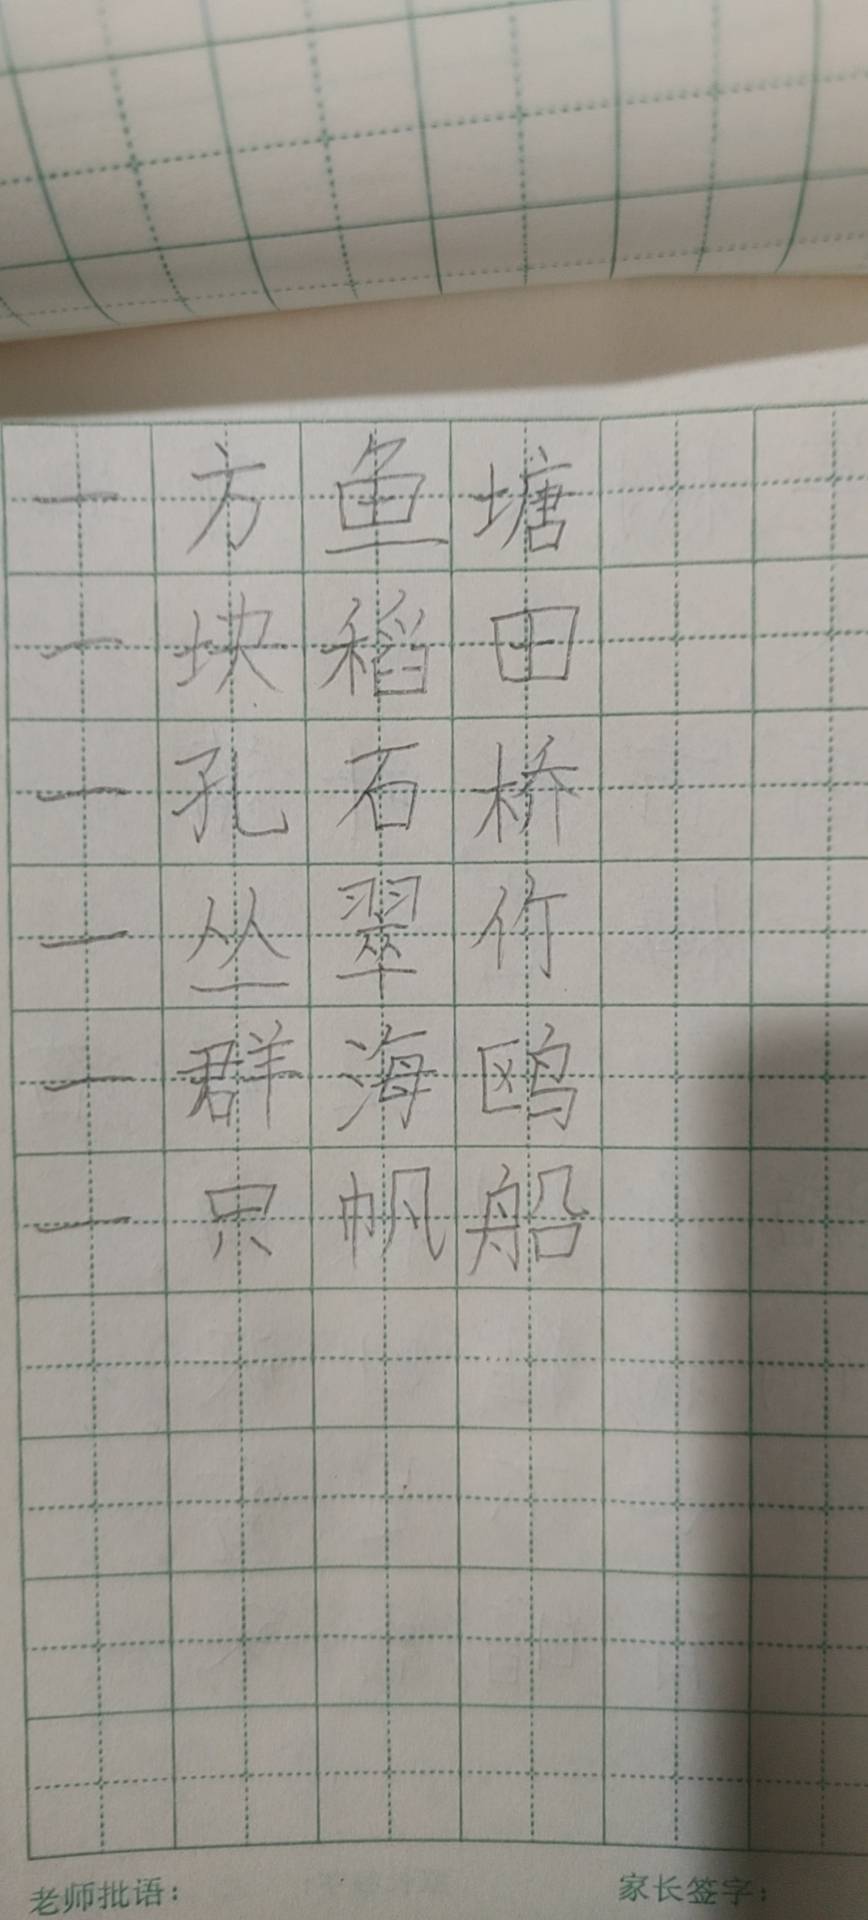 一方鱼塘
一块稻田
一孔石桥
一丛翠竹
一群海鸥
一只帆船
老师批语： 家长签字：